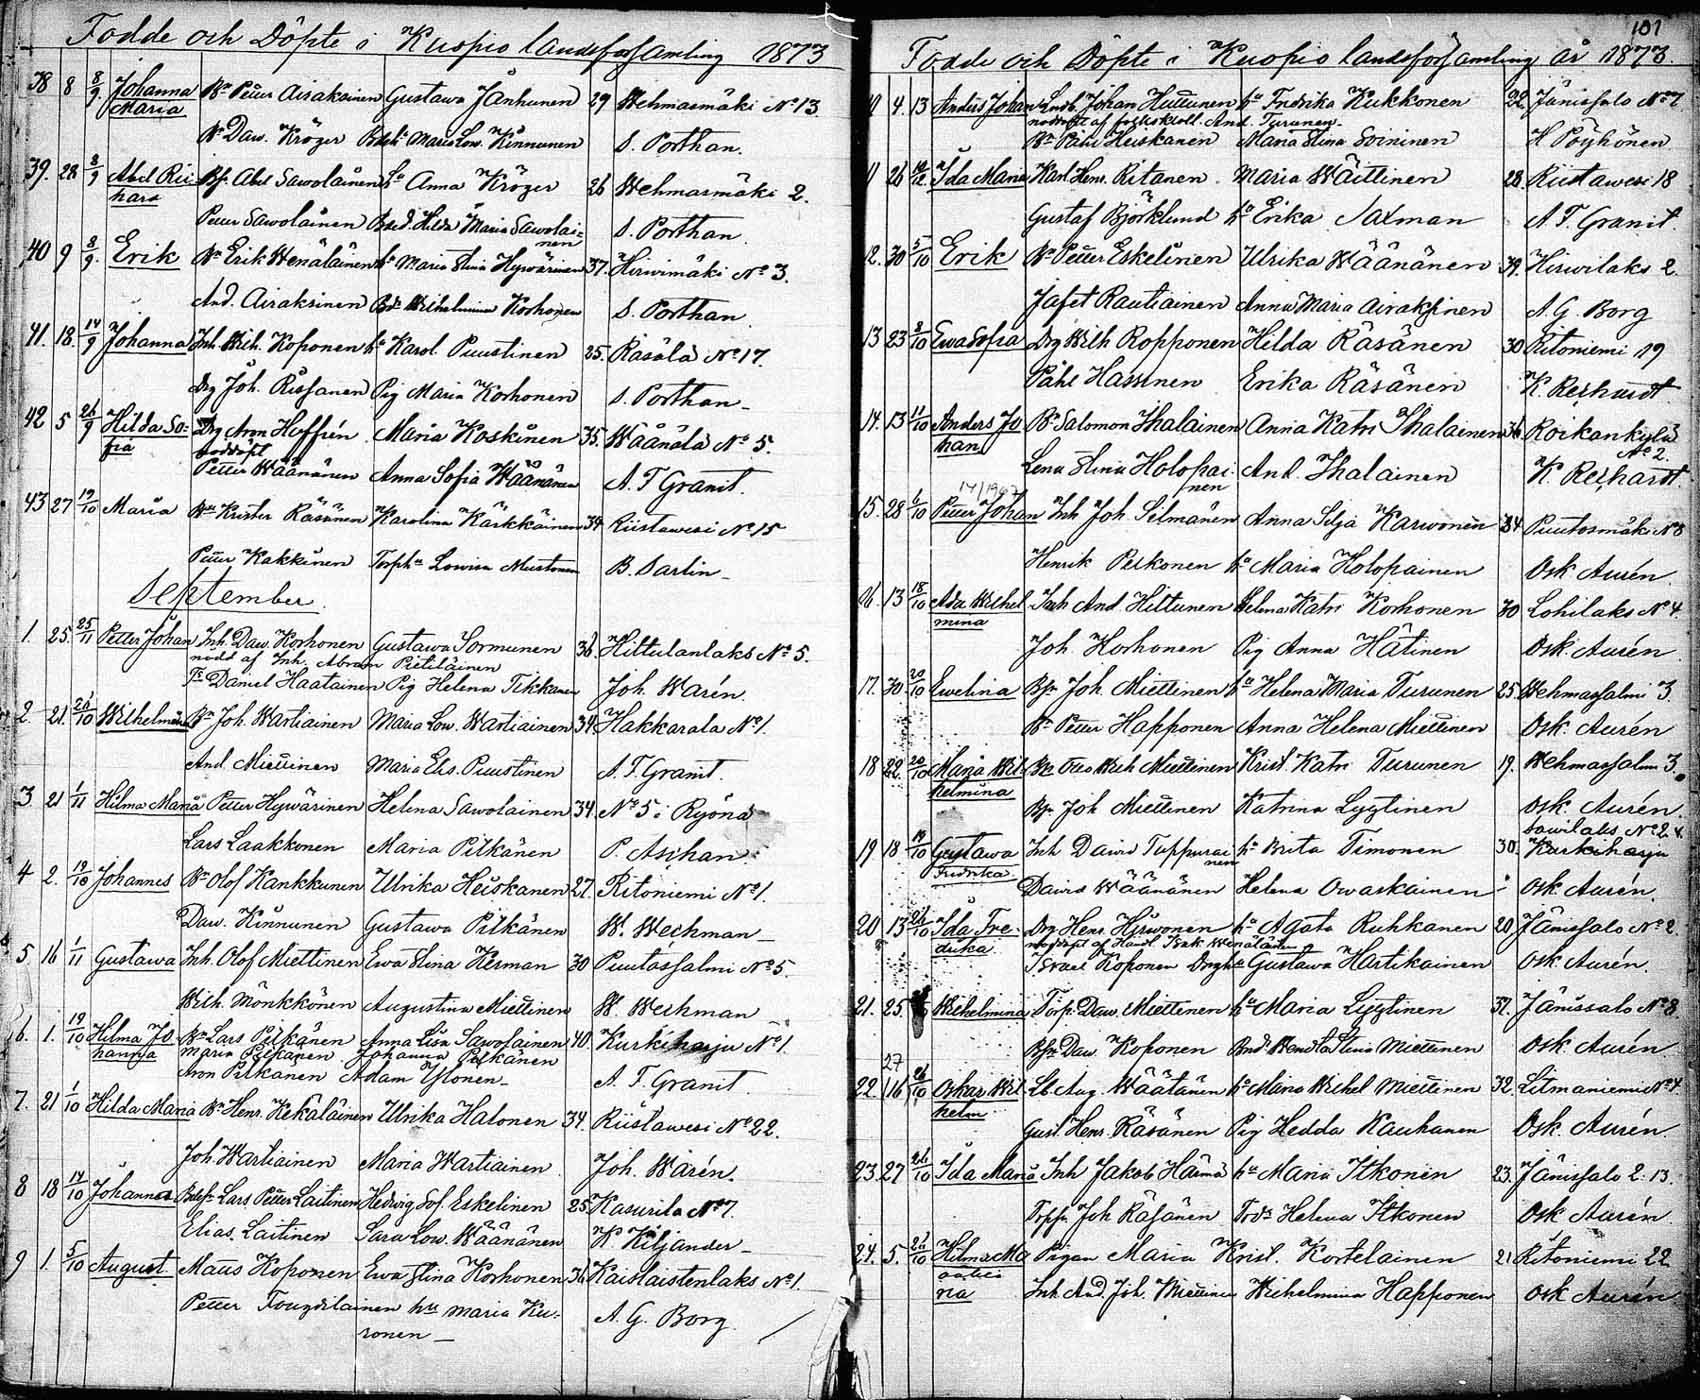 Födde och Döpte i Kuopio landsförsamling 1873
38 8 8/9 Johanna Bn Petter Airakainen Gustava Jänhunen 29 Wehmasmäki No 13
Maria
Bn Daw. Kröger Maria Low. Kinnunen S. Porthan.
39. 28 8/9 Abel Rii- Abel Sawolainen hu Anna Kröger 26 Wehmasmäki 2.
hard
Petter Sawolainen Hilda Maria Sawolai-
nen S. Porthan
40 9 8/9. Erik Bn Erik Wenäläinen hu Maria Stina Hywärinen 37. Hirwimäki No 3.
And. Airaksinen Wilhelmina Korhonen S. Porthan
41. 18. 14/9 Johanna Inh. Wilh. Koponen hu Karol. Puustinen 25. Räsälä No 17.
Drg Joh. Rissanen Pig Maria Korhonen S. Porthan
42 5 26/9 Hilda So- Drg Aron Hoffrén Maria Koskinen 35. Wäänälä No 5.
fia nöddöpt
Petter Wäänänen Anna Sofia Wäänänen A. F Granit.
43 27 19/10 Maria Bn Krister Räsänen Karolina Kärkkäinen 34 Riistawesi No 15
Petter Kakkinen Lowisa Mustonen B. Sarlin
September.
1. 25. 25/11 Petter Johan Inh. Daw. Korhonen Gustawa Sormunen 36. Hiltulanlaks No 5.
nödd af Inh. Abram Pietiläinen
Daniel Haatainen Pig Helena Tikkanen Joh. Warén
2. 21. 26/10 Wilhelmina Bn Joh. Wartiainen Maria Low. Wartiainen 34. Hakkarala No 1.
And. Miettinen Maria Elis. Puustinen A. F. Granit.
3 21 1/11 Hilma Maria Petter Hywärinen Helena Sawolainen 34 No 5 i Ryönä
Lars Laakkonen Maria Pitkänen P. Aschan.
4 2. 19/10 Johannes Bn Olof Kankkunen Ulrika Heiskanen 27. Ritoniemi No 1.
Daw. Kinnunen Gustawa Pitkänen W. Weckman
5 16 1/11 Gustawa Inh. Olof Miettinen Ewa Stina Kerman 30 Puutossalmi No 5.
Wilh. Mönkkönen Augustina Miettinen W. Weckman
6. 1. 19/10 Hilma Jo- Bn Lars Pitkänen Anna Lisa Sawolainen 40. Kurkiharju No 1.
hanna Maria Pitkänen Johanna Pitkänen
Aron Pitkänen Adam Ylönen A. F. Granit
7. 21 1/10 Hilda Maria Bn Henr. Kekäläinen Ulrika Halonen 34. Riistawesi No 22.
Joh. Wartiainen Maria Wartiainen Joh. Warén.
8 18 14/10 Johannes Lars Petter Laitinen Hedwig Sof. Eskelinen 25. Kasurila No 7.
Elias Laitinen Sara Low. Wäänänen K. Kiljander
9 1. 5/10 August Matts Koponen Ewa Stina Korhonen 36. Kaislaistenlaks No 1.
Petter hu Maria Ku-
ronen A. G. Borg.
101
Födde och Döpte i Kuopio landsförsamling år 1873.
4. 13 Anders Johan Johan Huttunen hu Fredrika Kukkonen 22. Jänissalo No 7
nöddöpt af And. Turunen
Bn Påhl Heiskanen Maria Stina Soininen H Pöyhönen
11 26 Ida Maria Karl Henr. Ritanen Maria Wäittinen 28. Riistawesi 18
Gustaf Björklund hu Erika Saxman A. F. Granit.
12. 30 5/10 Erik Bn Petter Eskelinen Ulrika Wäänänen 39. Hirwilaks 2.
Jafet Rautiainen Anna Maria Airaksinen A. G. Borg
13 23 8/10 Ewa Sofia Drg Wilh Ropponen Hilda Räsänen 30 Ritoniemi 19
Påhl Hassinen Erika Räsänen K. Reihardt.
14. 13 11/10 Anders Jo- Bn Salomon Ihalainen Anna Katri Ihalainen 36 Roikankylä
han No 2.
Lena Stina Holopai-
nen And. Ihalainen K. Reihardt.
15. 28 6/10 Petter Johan Inh Joh. Silmänen Anna Silja Karwonen 34 Puutosmäki No 8
Henrik Pekonen hu Maria Holopainen Osk Aurén.
16. 13 18/10 Ada Wilhel- Inh And. Hiltunen Helena Katri Korhonen 30 Lohilaks No 4.
mina
Joh. Korhonen Pig Anna Hätinen Osk. Aurén.
17. 30 20/10 Ewelina Joh. Miettinen hu Helena Maria Turunen 25. Wehmassalmi 3.
Bn Petter Happonen Anna Helena Miettinen Osk. Aurén
18 22. 20/10 Maria Wil- Otto Wilh Miettinen Krist. Katri Turunen 19. Wehmassalmi 3.
helmina
Joh Miettinen Katrina Lyytinen Osk. Aurén.
Sawilaks No 24
19 18 19/10 Gustawa Inh David Toppurai-
nen hu Brita Timonen 30. Kurkiharju
Fredrika
David Wäänänen Helena Owaskainen Osk. Aurén.
20 13 26/10 Ida Fre- Drg Henr. Hirwonen hu Agata Ruhkanen 20 Jänissalo No 2.
drika nöddöpt af Isak Wenäläinen
Israel Koponen Gustawa Hartikainen Osk. Aurén.
21. 25. Wilhelmina Torp. Daw. Miettinen hu Maria Lyytinen 37. Jänissalo No 8.
Daw. Koponen Miettinen Osk. Aurén
27
22. 16 26/10 Oskar Wil- Aug. Wäätänen hu Maria Wilhel. Miettinen 32. Litmaniemi No 4.
helm
Gust. Henr. Räsänen Pig Hedda Kauhanen Osk. Aurén.
23. 27 26/10 Ida Maria Inh Jakob Härmä hu Maria Itkonen 23. Jänissalo 2. 13.
Joh Räsänen Helena Itkonen Osk Aurén.
24. 5. 26/10 Hilma Ma- Pigan Maria Krist. Kortelainen 21 Ritoniemi 22
ria
Inh And. Joh. Miettinen Wilhelmina Happonen Osk Aurén